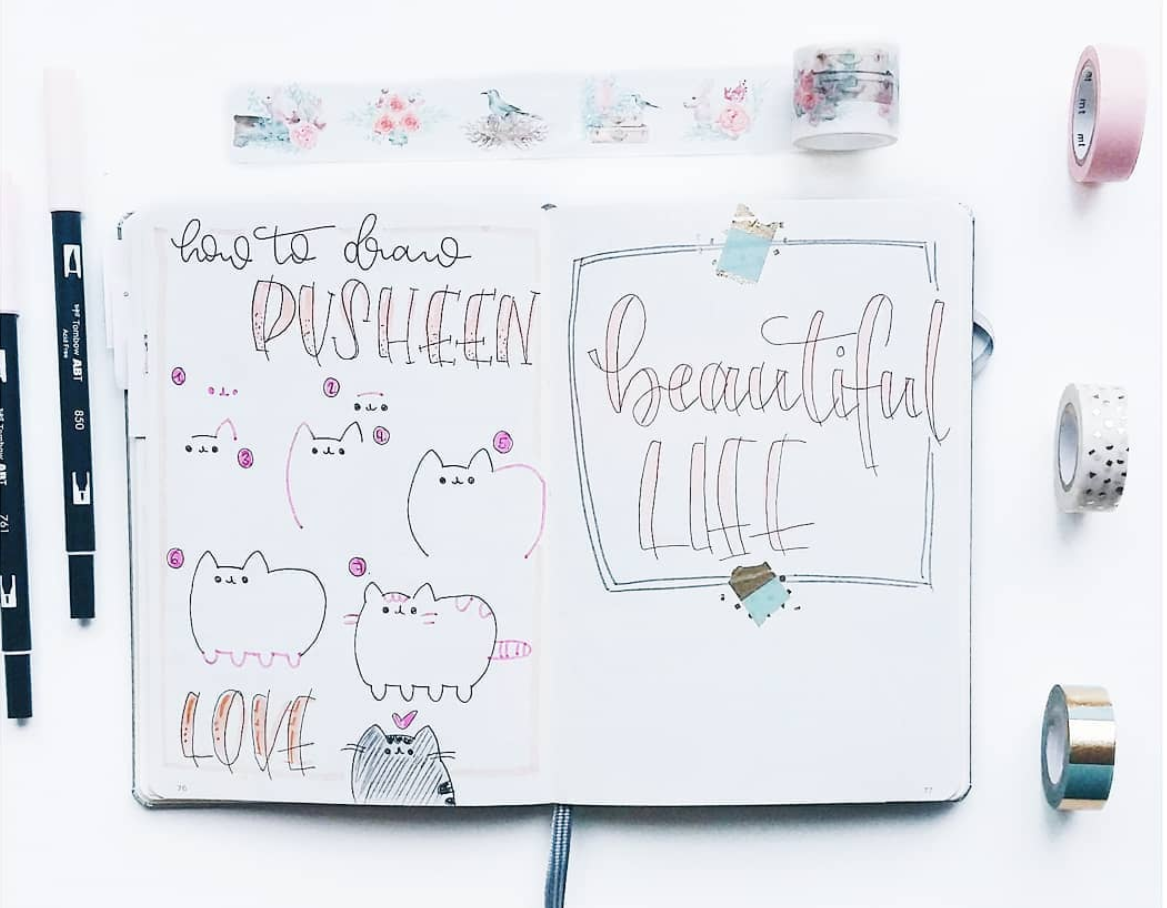 how to draw
PUSHEEN
1
2
3
4
5
6
7
LOVE
76
beautiful
LIFE
77
Tombow ABT
Acid Free
850
Tombow ABT
761
mt
mt